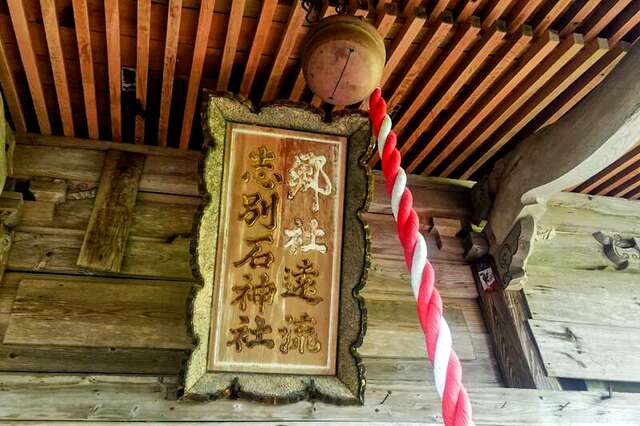 郷社遠流
志別石神社